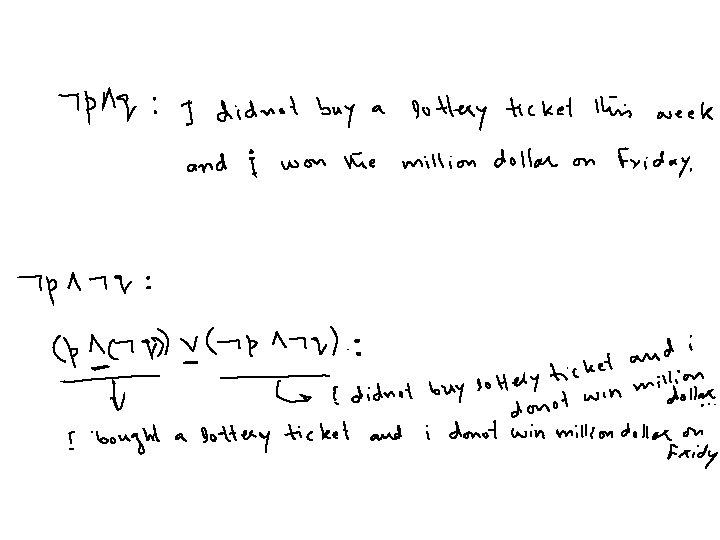 ¬p∧q : I didnot buy a lottery ticket this week
and i won the million dollar on Friday.
¬p∧¬q :
(p∧(¬q)) ∨ (¬p∧¬q) :
I didnot buy lottery ticket and i
donot win million
dollar...
I bought a lottery ticket and i donot win million dollar on
Fridy